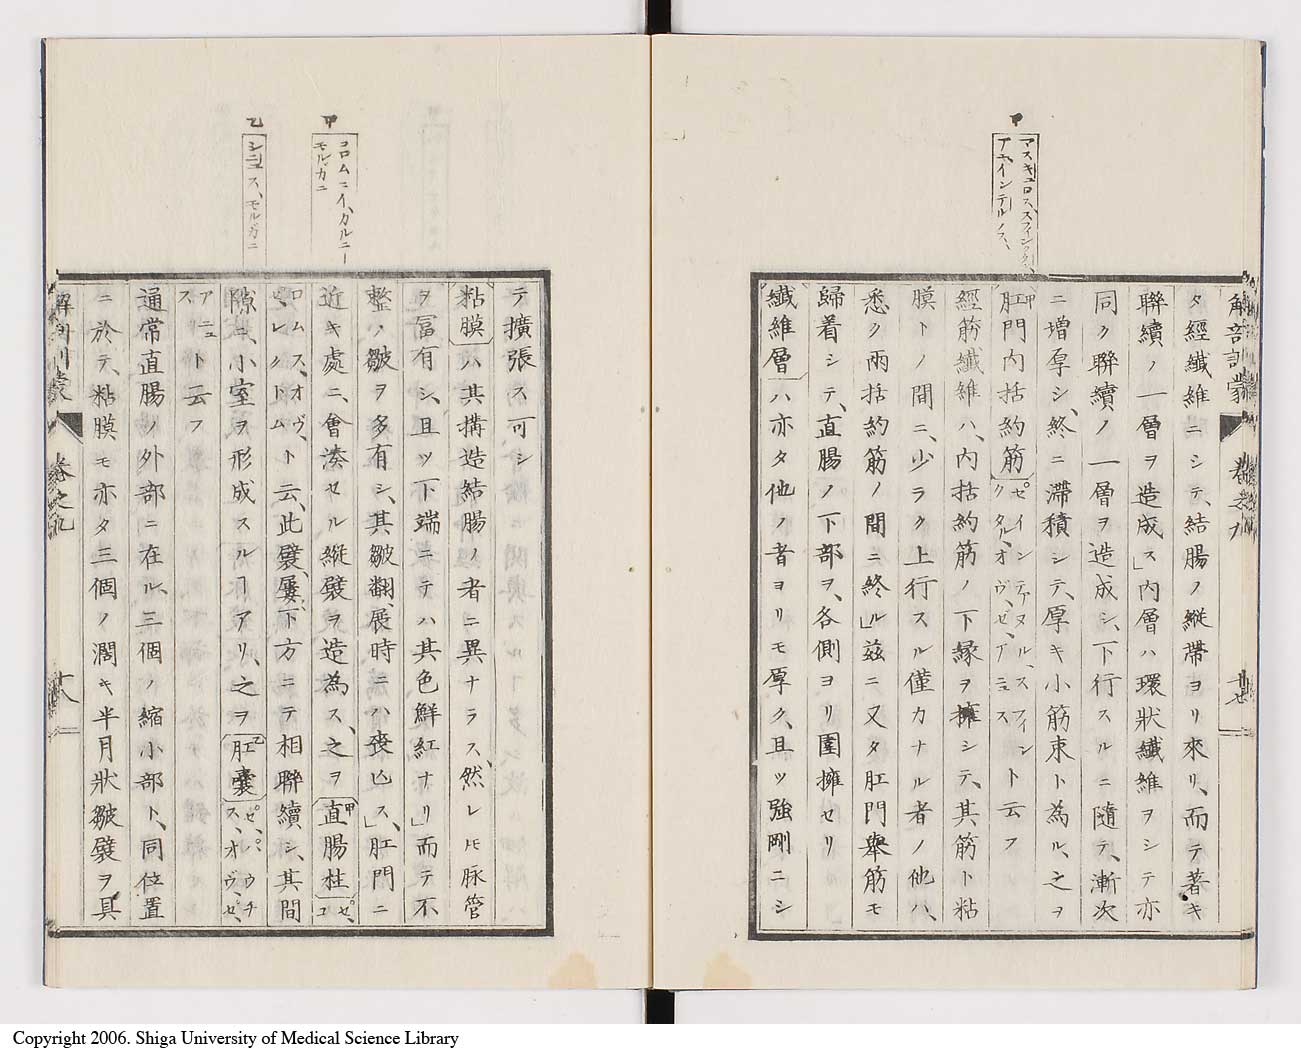 甲
マスキュロス、スフィンクタ、
アニ、インテルノス、
解剖訓蒙 卷之九
タ經纖維ニシテ、結腸ノ縦帶ヨリ來リ、而テ著キ
聯續ノ一層ヲ造成ス」内層ハ環狀纖維ヲシテ亦
同ク聯續ノ一層ヲ造成シ、下行スルニ隨テ、漸次
ニ増厚シ、終ニ滞積シテ、厚キ小筋束ト為ル、之ヲ
甲肛門内括約筋 ゼ、インテルナル、スフィンクタル、オヴ、ゼ、アニュス ト云フ
經筋纖維ハ、内括約筋ノ下緣ヲ擁シテ、其筋ト粘
膜トノ間ニ、少ラク上行スル僅カナル者ノ他ハ、
悉ク兩括約筋ノ間ニ終ル」茲ニ又タ肛門舉筋モ
歸着シテ、直腸ノ下部ヲ、各側ヨリ圍擁セリ
纖維層ハ亦タ他ノ者ヨリモ厚ク、且ツ強剛ニシ
甲
コロムニイ、カルニー
モルガニ
乙
シニュス、モルガニ
テ擴張ス可シ
粘膜ハ其搆造結腸ノ者ニ異ナラス、然レ𪜈脉管
ヲ冨有シ、且ツ下端ニテハ其色鮮紅ナリ」而テ不
整ノ皺ヲ多有シ、其皺翻展時ニハ喪亾ス」肛門ニ
近キ處ニ、會湊セル縱襞ヲ造為ス、之ヲ甲直腸柱 ゼ、コ
ロムス、オヴ、ゼ、レクトム ト云、此襞、屢〻下方ニテ相聯續シ、其間
隙ニ、小室ヲ形成スルヿアリ、之ヲ乙肛嚢 ゼ、パウチス、オヴ、ゼ、
アニュス ト云フ
通常直腸ノ外部ニ在ル、三個ノ縮小部ト、同位置
ニ於テ、粘膜モ亦タ三個ノ濶キ半月狀皺襞ヲ具
解剖訓蒙 卷之九 十八